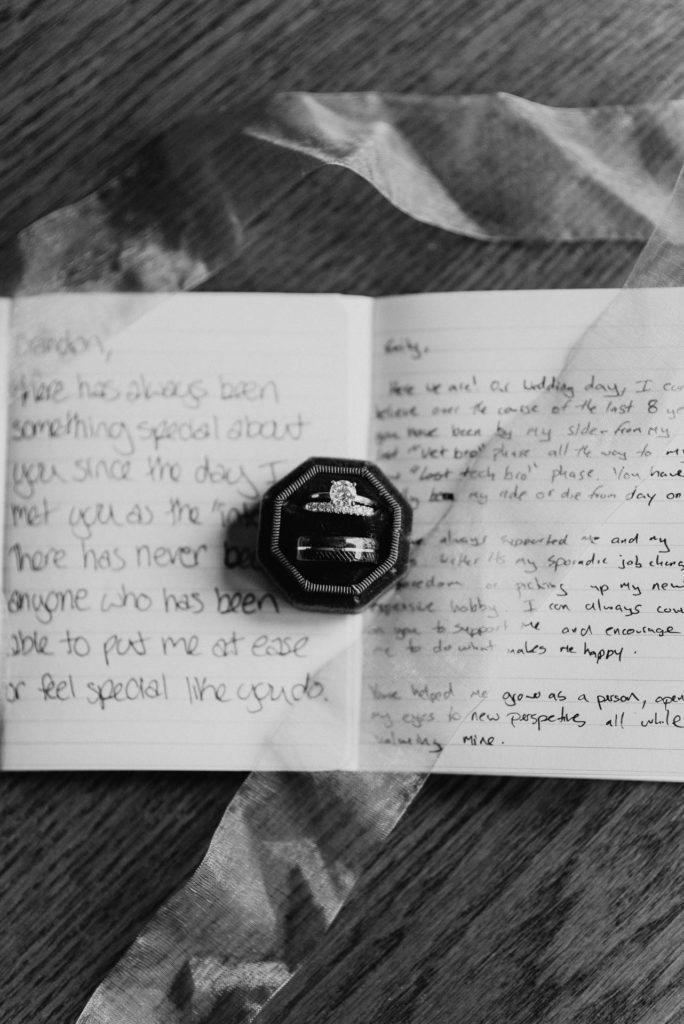 Brandon,
there has always been
something special about
you since the day I
met you as the
There has never
anyone who has been
able to put me at ease
or feel special like you do.
Emily,
Here we are! Our wedding day, I
believe over the course of the last 8
you have been by my side from my
"Vet bro" phase all the way to
"Lost tech bro" phase. You have
my ride or die from day
always supported me and my
its my sporadic job
or picking up my
expensive hobby. I can always
on you to support me and encourage
me to do what makes me happy.
You've helped me grow as a person,
my eyes to new perspetives all
valueing mine.